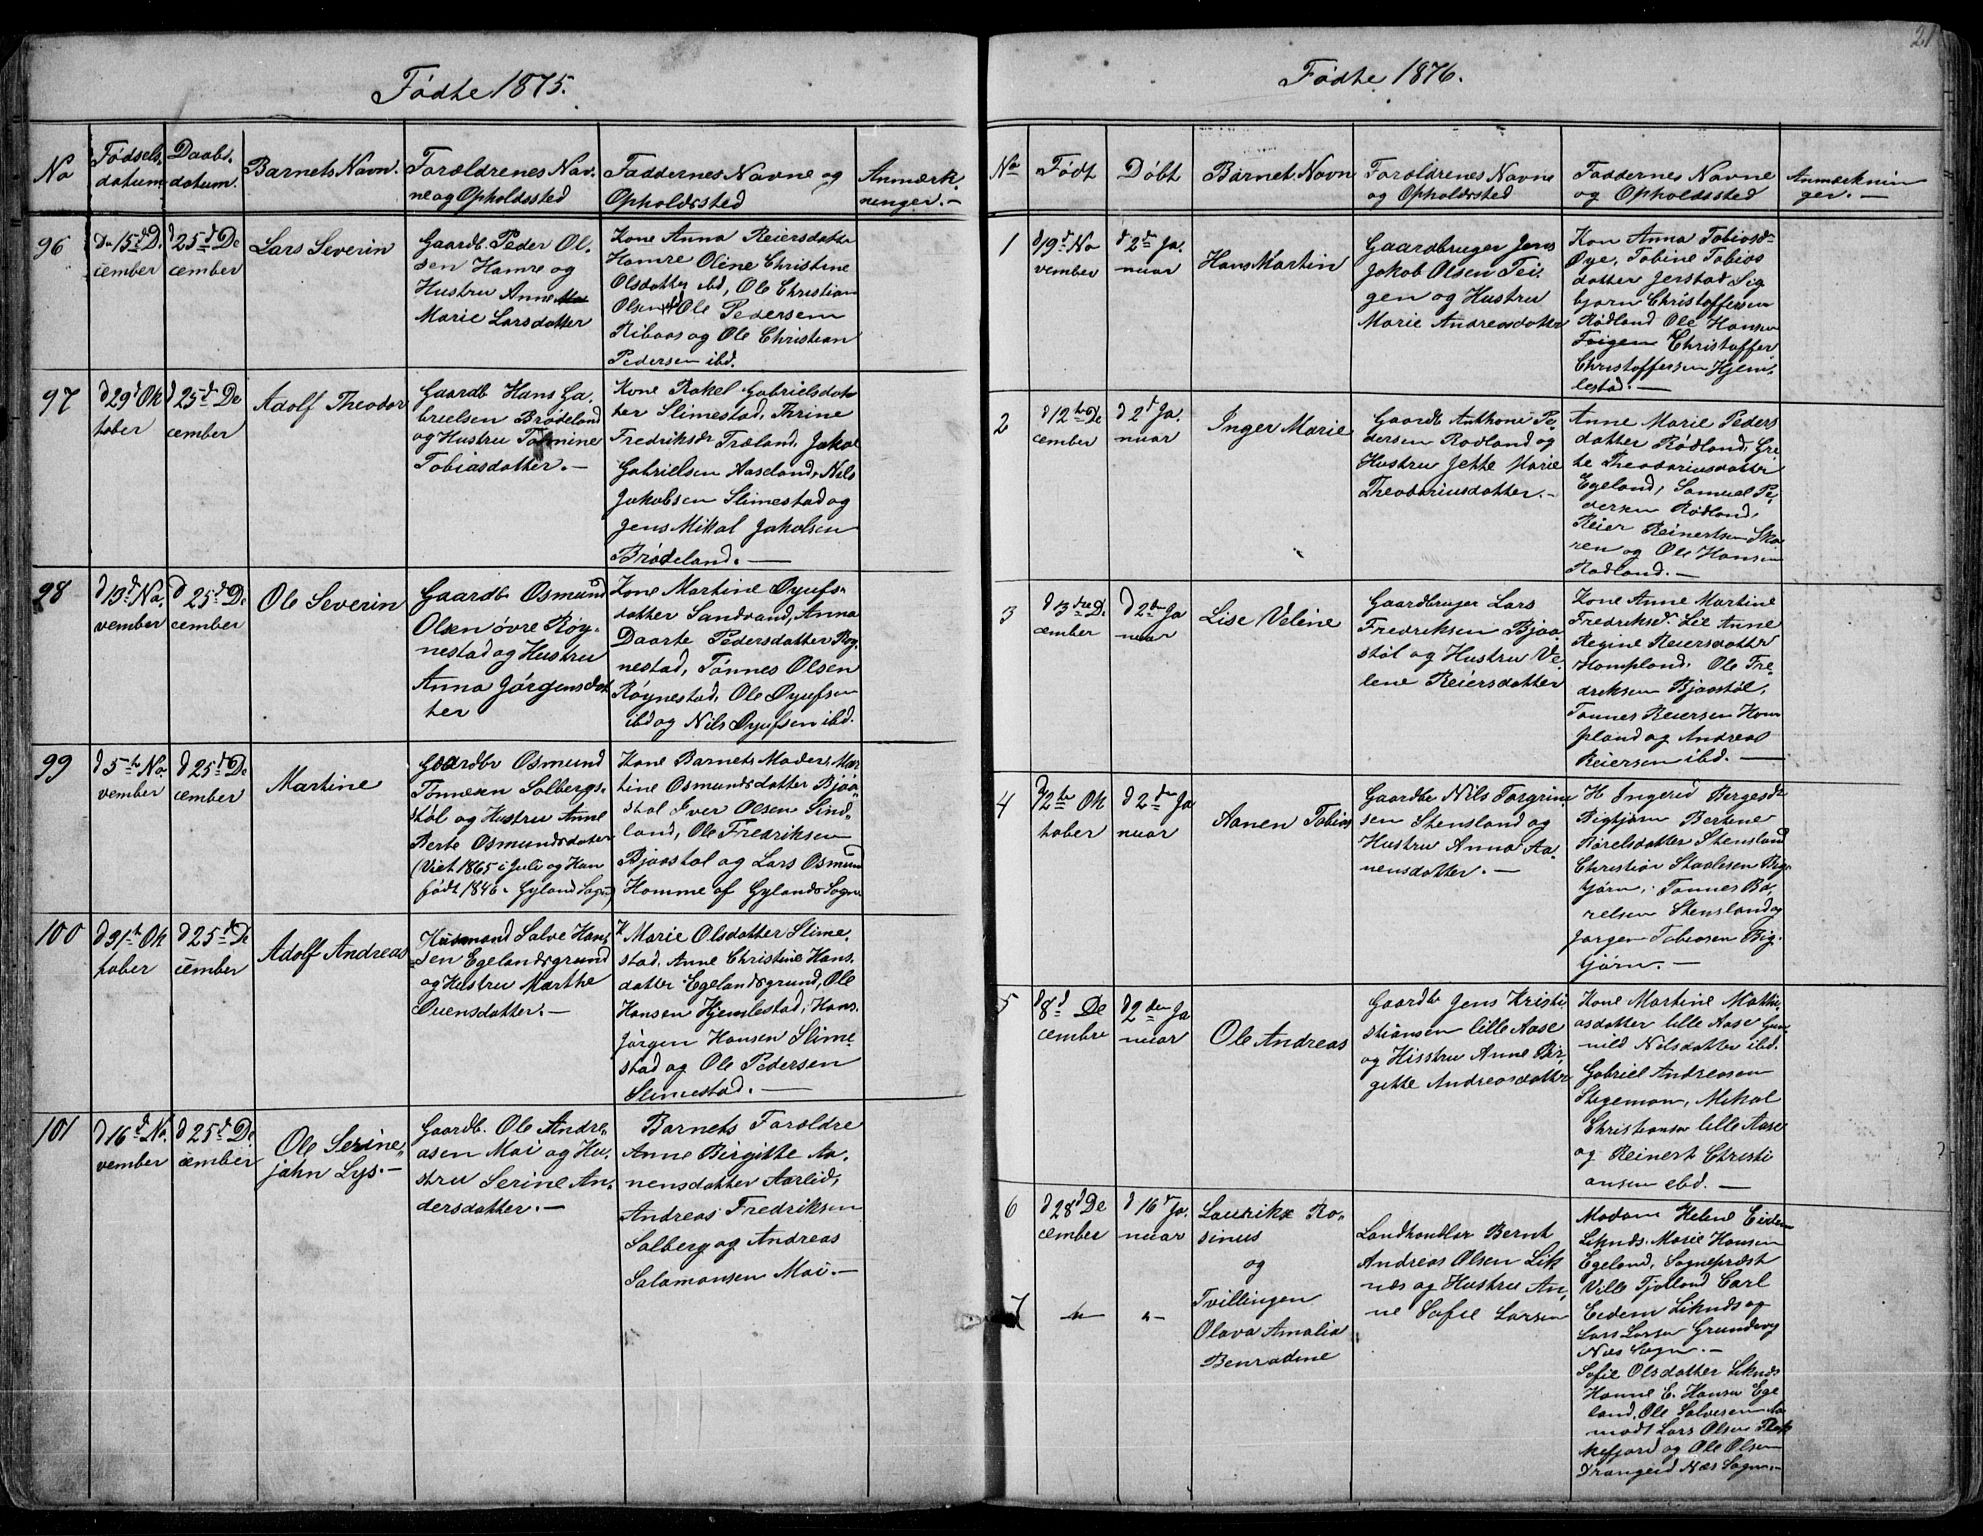 Fødte 1875.
No
Fødsels-
datum
Daabs-
datum.
Barnets Navn.
Forældrenes Nav-
ne og Opholdssted
Faddernes Navne og
Opholdssted
Anmærk-
ninger.-
96
Den 15de De
cember
d 25de De
cember
Lars Severin
Gaardb. Peder Ol-
sen Hamre og
Hustru Anne
Marie Larsdatter
Kone Anna Reiersdatter
Hamre Oline Christine
Olsdatter ibd, Ole Christian
Olsen ibd Ole Pedersen
Ribaas og Ole Christian
Pedersen ibd.
97
d 29d Ok
tober
d 25de De
cember
Adolf Theodor
Gaardb Hans Ga-
brielsen Brødeland
og Hustru Tomine
Tobiasdatter.-
Kone Rakel Gabrielsdat-
ter Slimestad, Thrine
Fredriksdr Træland, Jakob
Gabrielsen Aaseland, Nils
Jakobsen Slimestad og
Jens Mikal Jakobsen
Brødeland.-
98
d 13d No-
vember
d 25de De
cember
Ole Severin
Gaardbr Osmund
Olsen øvre Røy-
nestad og Hustru
Anna Jørgensdat
ter
Kone Martine Øyufs-
datter Sandvand, Anna
Daarte Pedersdatter Røy-
nestad, Tønnes Olsen
Røynestad, Ole Øyufsen
ibd og Nils Øyufsen ibd.
99
d 5te No
vember
d 25de De
cember
Martine
Gaardbr Osmund
Tønnesen Solbergs-
støl og Hustru Anne
Berte Osmundsdatter
(Viet 1865 i Juli og Han
født 1846. Gyland Sogn)
Kone Barnets Moder, Mar-
tine Osmundsdatter Bjaa-
stol Iver Olsen Sind-
land, Ole Fredriksen
Bjaastol og Lars Osmund
Homme af Gylands Sogn
100
d 31te Ok
tober
d 25de De
cember
Adolf Andreas
Husmand Salve Han-
sen Egelandsgrund
og Hustru Marthe
Ouensdatter.-
K Marie Olsdatter Slime-
stad, Anne Christine Hans-
datter Egelandsgrund, Ole
Hansen Hjemlestad, Hans
Jørgen Hansen Slime-
stad og Ole Pedersen
Slimestad.-
101
d 16de No.
vember
d 25de De
cember
Ole Serine-
jahn Lys.-
Gaardb. Ole Andre-
asen Moi og Hu-
stru Serine An-
dersdatter.-
Barnets Forældre
Anne Birgitte Aa-
nensdatter Aarlid,
Andreas Fredriksen
Salberg og Andreas
Salamonsen Moi.-
21
Fødte 1876.
No
Født
Døbt
Barnet. Navn
Forældrenes Navne
og Opholdssted
Faddernes Navne
og Opholdssted
Anmærknin
ger.-
1
d 19de No
vember
d 2den Ja-
nuar
Hans Martin
Gaardbruger Jens
Jakob Olsen Fei-
gen og Hustru
Marie Andreasdatter
Kon Anna Tobiasdr
Øye, Tobine Tobias
datter Jerstad Sig
bjørn Christoffersen
Rødland Ole Hansen
Feigen Christoffer
Christoffersen Hjem-
lestad.-
2
d 12te De
cember
d 2d Ja.
nuar
Inger Marie
Gaardb Anthoni Pe-
dersen Rødland og
Hustru Jette Marie
Theodoriusdatter.-
Anne Marie Peders
datter Rødland, Gre-
te Theodoriusdatter
Egeland, Samuel Pe-
dersen Rødland,
Reier Reinertsen Ska-
ren og Ole Hansen
Rødland.-
3
d 13de De-
cember
d 2den Ja
nuar
Lise Veline
Gaardbruger Lars
Fredriksen Bjaa-
støl og Hustru Ve-
lene Reiersdatter
Kone Anne Martine
Fredriksd. Lie Anne
Regine Reiersdatter
Hompland. Ole Fre-
driksen Bjaastøl,
Tønnes Reiersen Hom
pland og Andreas
Reiersen ibd.-
4
d 12te Ok
tober
d 2den Ja
nuar
Aanen Tobias
Gaardbr Nils Torgrim
sen Stensland og
Hustru Anna Aa-
nensdatter.-
K Ingerid Bergesdr
Bigtjørn Bertine
Børelsdatter Stensland
Christian Staalesen Big-
tjørn, Tønnes Bø-
relsen Stensland og
Jørgen Tobiasen Big-
tjørn.-
5
d 8d De
cembre
d 2den Ja
nuar
Ole Andreas
Gaardb Jens Kristi-
stiansen lille Aase
og Hisstru Anne Bir-
gitte Andreasdatter
Kone Martine Mathi-
asdatter lille Aase Gun-
nild Nilsdatter ibd.
Gabriel Andreasen
Stegemoen, Mikal
Christiansen lille Aase
og Reinert Christi
ansen ebd.-
6
d 28d De
cember
d 16de Ja.
nuar
Laurike Ro-
sinus
og
Tvillingen
Olava Amalia
Benradine
7
-"-
"-
Landhandler Bernt
Andreas Olsen Lik
næs og Hustru An-
ne Sofie Larsen
Madam Helene Eidem
Liknds. Marie Hansen
Egeland, Sognepræst
Ville Fjotland Carl
Eidem Liknds og
Lars Larsen Grundevog
Næs Sogn.-
Sofie Olsdatter Liknds
Hanne E. Hansen Ege
land, Ole Salvesen Aa
modt Lars Olsen Flek
kefjord og Ole Olsen
Drangeid Næs Sogn.-